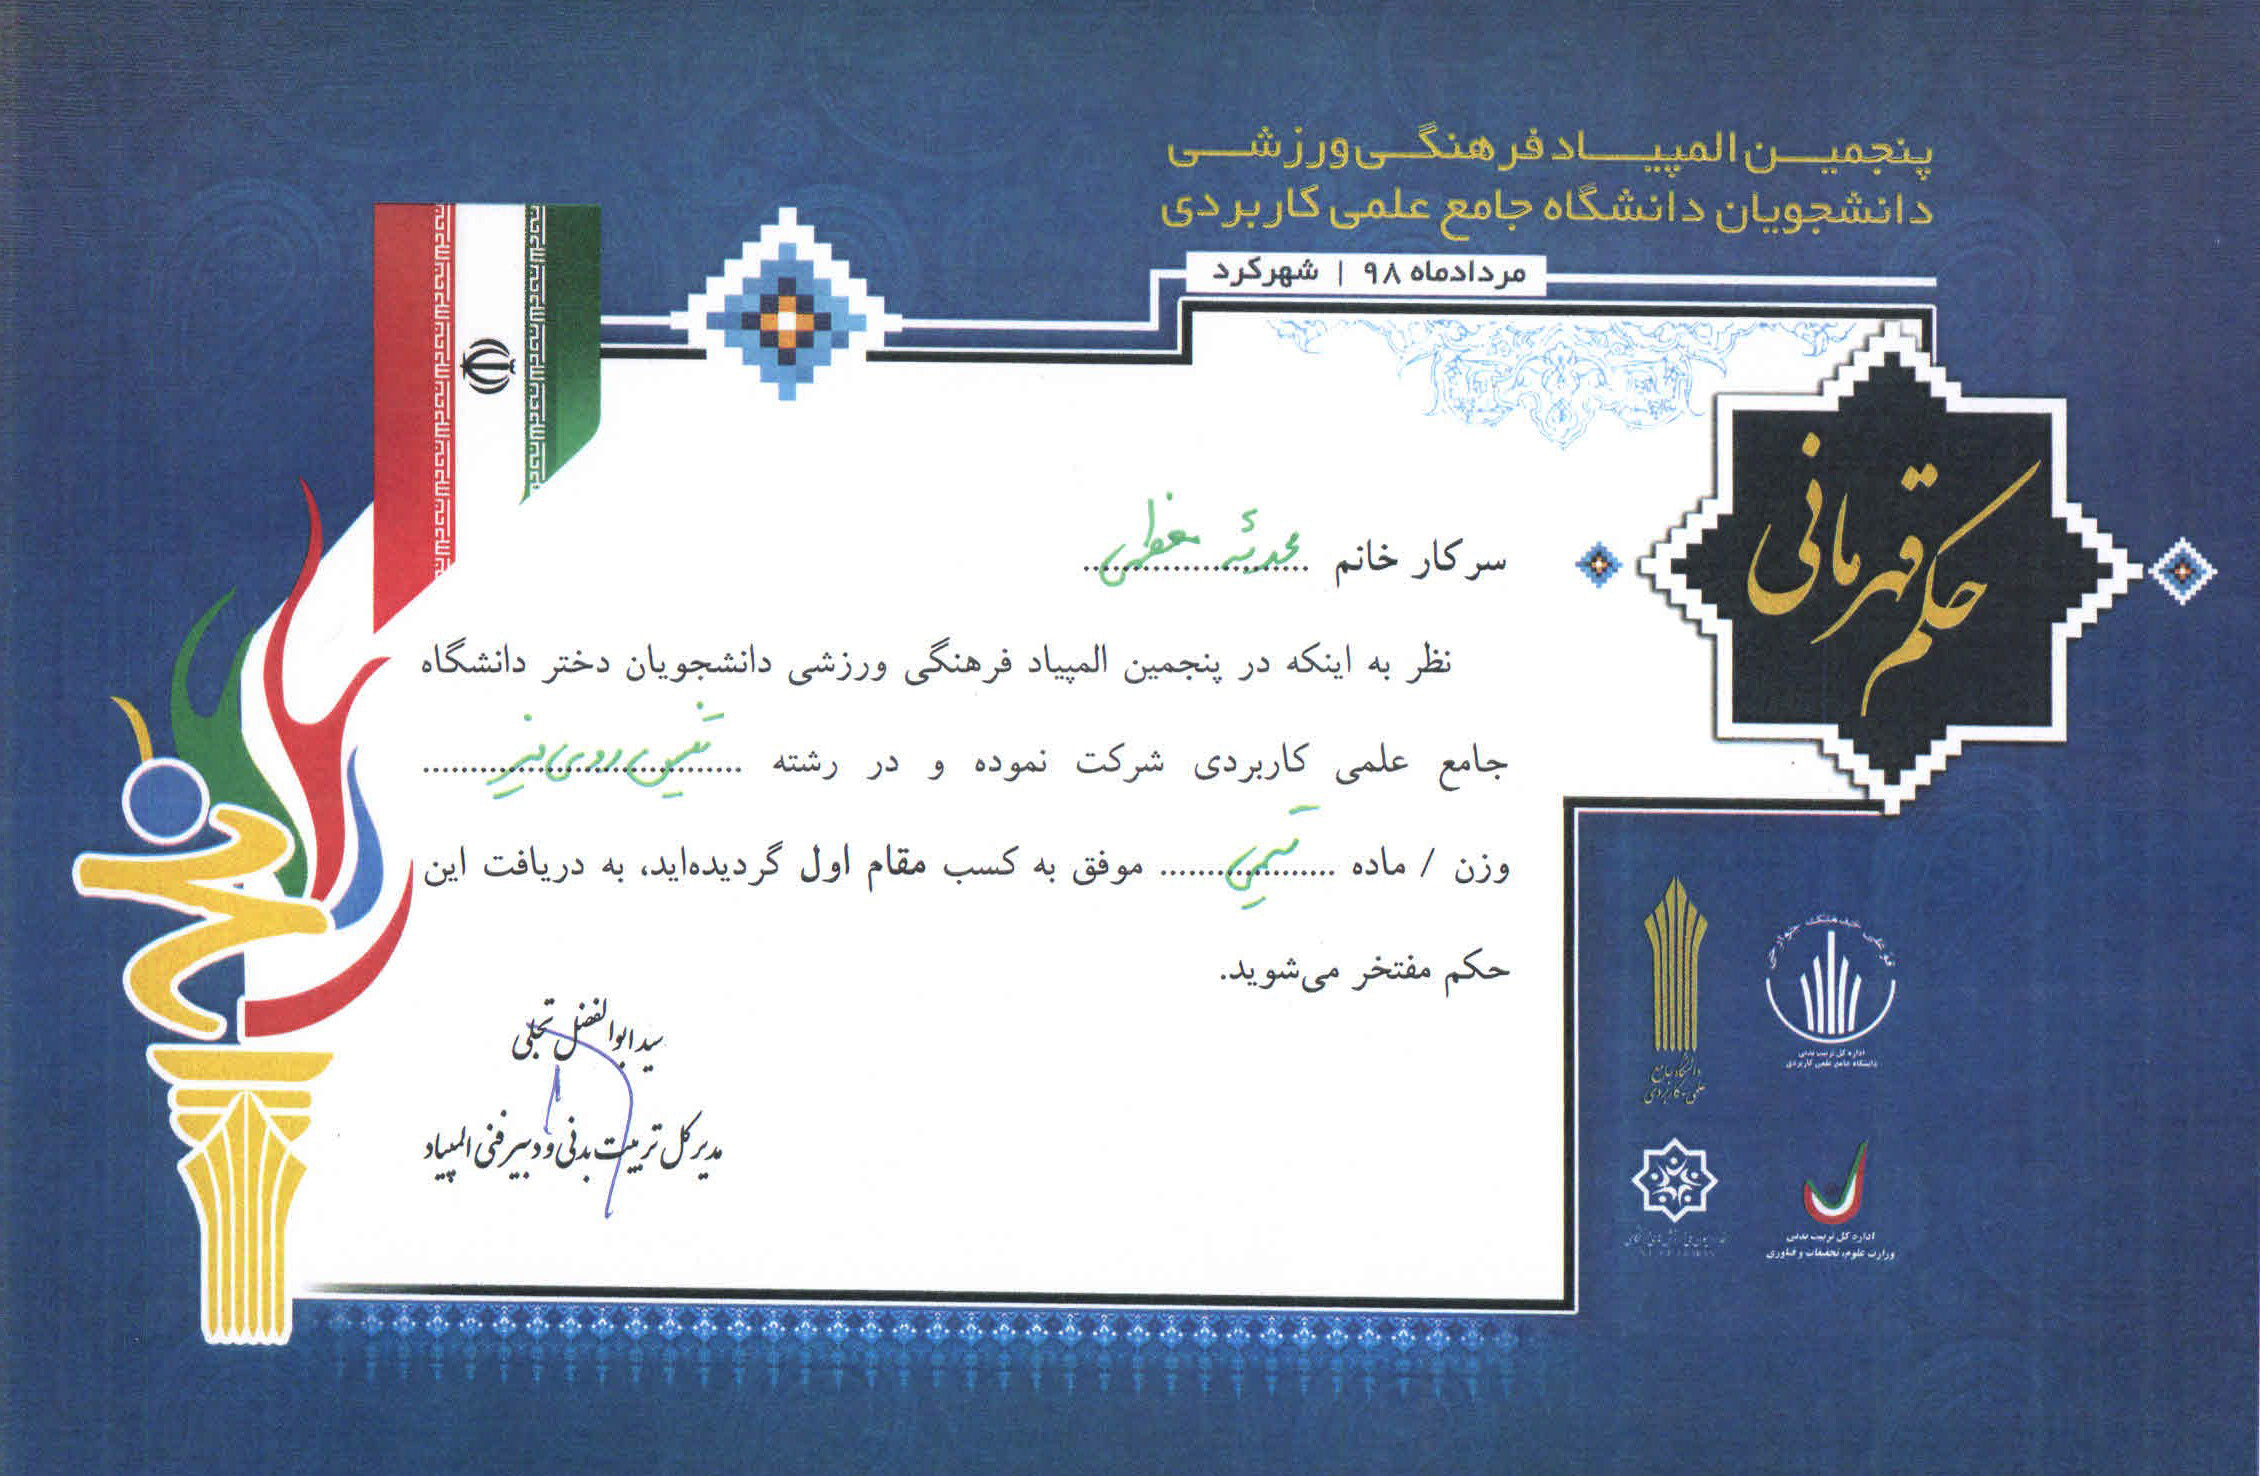 پنجمین المپیاد فرهنگی ورزشی
دانشجویان دانشگاه جامع علمی کاربردی
مردادماه ۹۸ | شهرکرد
حکم قهرمانی
سرکار خانم محدثه معظمی
نظر به اینکه در پنجمین المپیاد فرهنگی ورزشی دانشجویان دختر دانشگاه
جامع علمی کاربردی شرکت نموده و در رشته تنیس روی میز
وزن / ماده تیمی موفق به کسب مقام اول گردیده‌اید، به دریافت این
حکم مفتخر می‌شوید.
سید ابوالفضل تجلی
مدیر کل تربیت بدنی و دبیر فنی المپیاد
قو علی خدمتک جوارحی
اداره کل تربیت بدنی
دانشگاه جامع علمی کاربردی
دانشگاه جامع
علمی-کاربردی
اداره کل تربیت بدنی
وزارت علوم، تحقیقات و فناوری